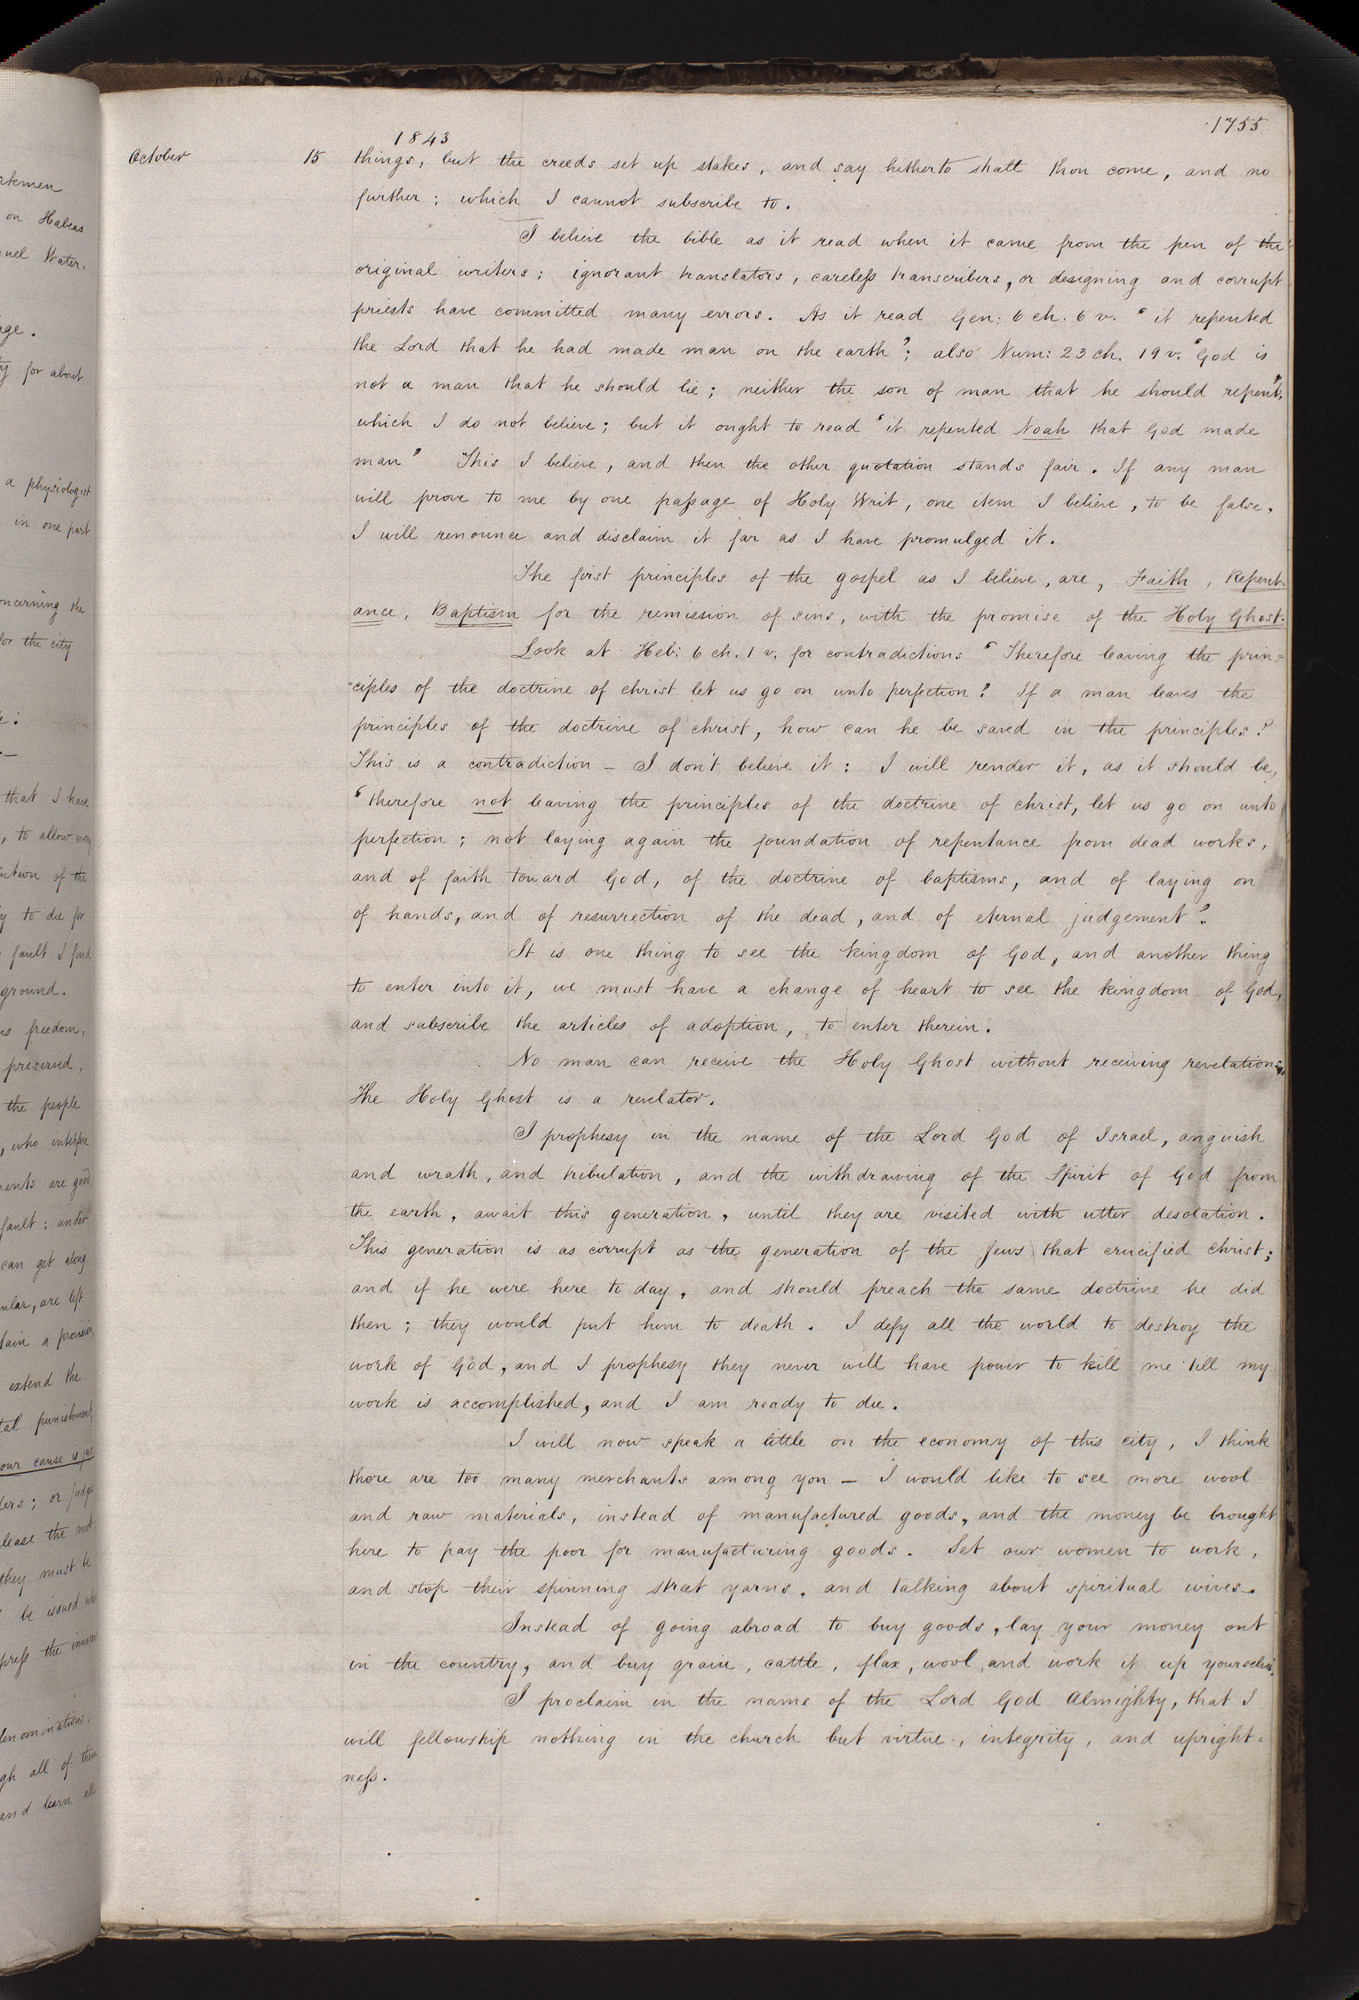 1755
1843
October 15 things, but the creeds set up stakes, and say hitherto shalt thou come, and no
further; which I cannot subscribe to.
I believe the bible as it read when it came from the pen of the
original writers; ignorant translators, careless transcribers, or designing and corrupt
priests have committed many errors. As it read Gen: 6 ch. 6 v. "it repented
the Lord that he had made man on the earth"; also Num: 23 ch. 19 v. "God is
not a man that he should lie; neither the son of man that he should repent",
which I do not believe; but it ought to read "it repented Noah that God made
man" This I believe, and then the other quotation stands fair. If any man
will prove to me by one passage of Holy Writ, one item I believe, to be false,
I will renounce and disclaim it far as I have promulged it.
The first principles of the gospel as I believe, are, Faith, Repent-
ance, Baptism for the remission of sins, with the promise of the Holy Ghost.
Look at Heb: 6 ch. 1 v. for contradictions "Therefore leaving the prin-
-ciples of the doctrine of christ let us go on unto perfection"? If a man leaves the
principles of the doctrine of christ, how can he be saved in the principles?
This is a contradiction — I don't believe it: I will render it, as it should be,
"therefore not leaving the principles of the doctrine of christ, let us go on unto
perfection; not laying again the foundation of repentance from dead works,
and of faith toward God, of the doctrine of baptisms, and of laying on
of hands, and of resurrection of the dead, and of eternal judgement".
It is one thing to see the kingdom of God, and another thing
to enter into it, we must have a change of heart to see the kingdom of God,
and subscribe the articles of adoption, to enter therein.
No man can receive the Holy Ghost without receiving revelations,
The Holy Ghost is a revelator.
I prophesy in the name of the Lord God of Israel, anguish
and wrath, and tribulation, and the withdrawing of the Spirit of God from
the earth, await this generation, until they are visited with utter desolation.
This generation is as corrupt as the generation of the Jews that crucified christ;
and if he were here to day, and should preach the same doctrine he did
then; they would put him to death. I defy all the world to destroy the
work of God, and I prophesy they never will have power to kill me till my
work is accomplished, and I am ready to die.
I will now speak a little on the economy of this city, I think
there are too many merchants among you — I would like to see more wool
and raw materials, instead of manufactured goods, and the money be brought
here to pay the poor for manufacturing goods. Set our women to work,
and stop their spinning street yarns, and talking about spiritual wives.
Instead of going abroad to buy goods, lay your money out
in the country, and buy grain, cattle, flax, wool, and work it up yourselves.
I proclaim in the name of the Lord God Almighty, that I
will fellowship nothing in the church but virtue, integrity, and upright-
ness.